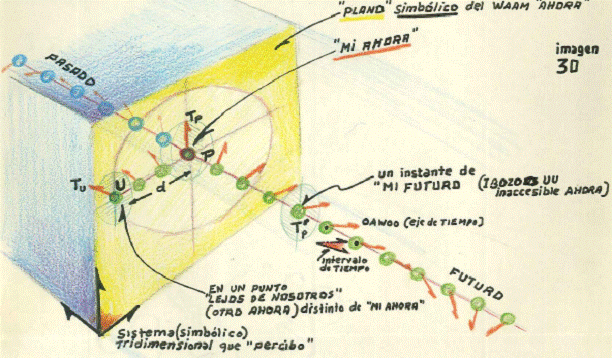 "PLANO" SIMBÓLICO del WAAM "AHORA"
"MI AHORA"
imagen
30
PASADO
TP
P
TU
U
d
un instante de
"MI FUTURO (IBOZOO UU
inaccesible AHORA)
T'P
OAWOO (eje de TIEMPO)
intervalo
de TIEMPO
EN UN PUNTO
"LEJOS DE NOSOTROS"
(OTRO AHORA) distinto de "MI AHORA"
FUTURO
Sistema (simbólico)
Tridimensional que "percibo"